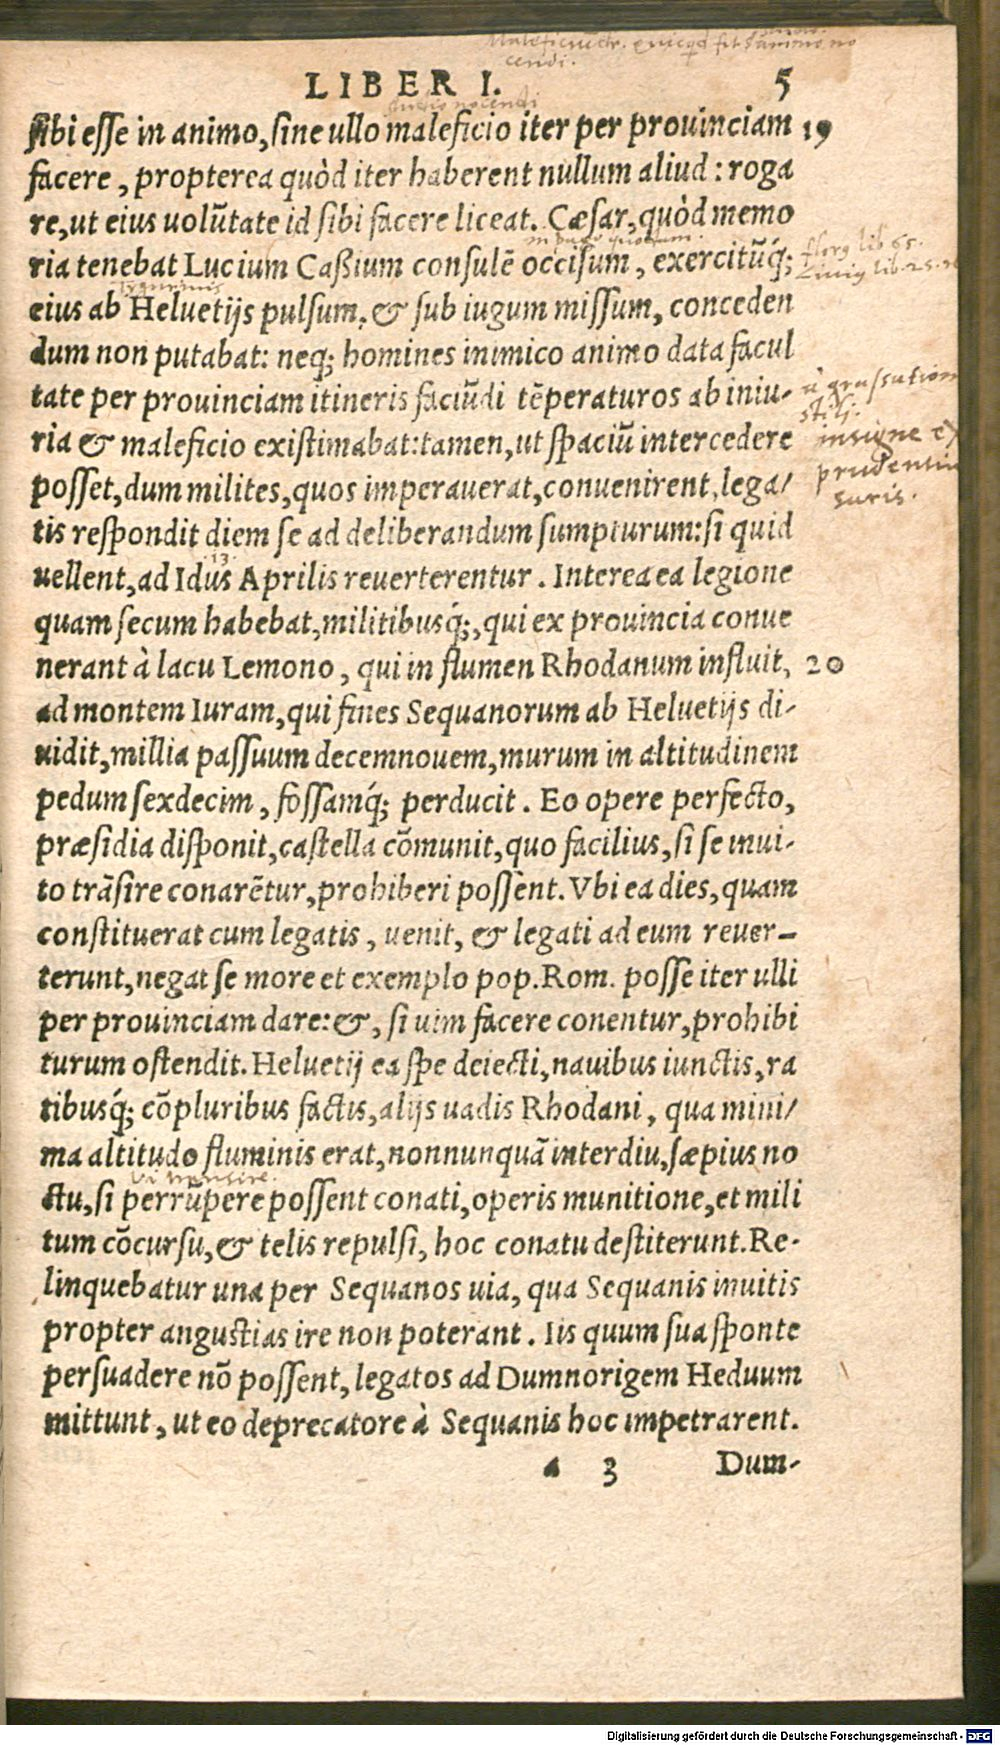 LIBER I. 5
sibi esse in animo, sine ullo maleficio iter per prouinciam 19
facere, propterea quòd iter haberent nullum aliud: roga
re, ut eius uolũtate id sibi facere liceat. Cæsar, quòd memo
ria tenebat Lucium Caßium consulẽ occisum, exercitũq́;
eius ab Heluetijs pulsum, & sub iugum missum, conceden
dum non putabat: neq; homines inimico animo data facul
tate per prouinciam itineris faciũdi tẽperaturos ab iniu-
ria & maleficio existimabat: tamen, ut spaciũ intercedere
insigne
posset, dum milites, quos imperauerat, conuenirent, lega/
tis respondit diem se ad deliberandum sumpturum: si quid
13.
uellent, ad Idus Aprilis reuerterentur. Interea ea legione
quam secum habebat, militibusq́;, qui ex prouincia conue
nerant à lacu Lemono, qui in flumen Rhodanum influit, 20
ad montem Iuram, qui fines Sequanorum ab Heluetijs di-
uidit, millia passuum decemnouem, murum in altitudinem
pedum sexdecim, fossamq́; perducit. Eo opere perfecto,
præsidia disponit, castella cõmunit, quo facilius, si se inui-
to trãsire conarẽtur, prohiberi possent. Vbi ea dies, quam
constituerat cum legatis, uenit, & legati ad eum reuer-
terunt, negat se more et exemplo pop. Rom. posse iter ulli
per prouinciam dare: &, si uim facere conentur, prohibi
turum ostendit. Heluetij ea spe deiecti, nauibus iunctis, ra
tibusq́; cõpluribus factis, alijs uadis Rhodani, qua mini/
ma altitudo fluminis erat, nonnunquã interdiu, sæpius no
ui transire.
ctu, si perrũpere possent conati, operis munitione, et mili
tum cõcursu, & telis repulsi, hoc conatu destiterunt. Re-
linquebatur una per Sequanos uia, qua Sequanis inuitis
propter angustias ire non poterant. Iis quum sua sponte
persuadere nõ possent, legatos ad Dumnorigem Heduum
mittunt, ut eo deprecatore à Sequanis hoc impetrarent.
a 3 Dum-
Digitalisierung gefördert durch die Deutsche Forschungsgemeinschaft - DFG